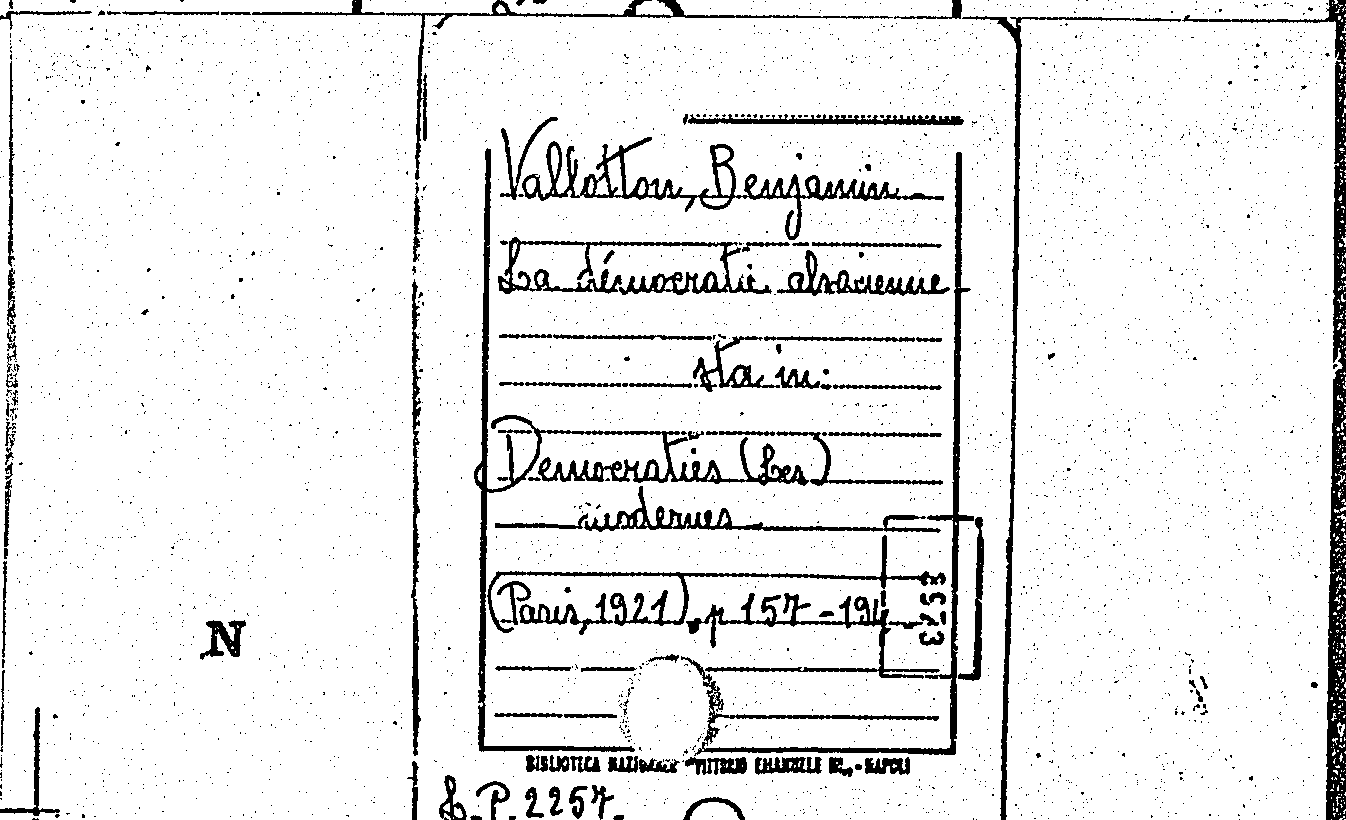 Vallotton, Benjamin
La démocratie alsacienne
sta in:
Democraties (Les)
modernes
(Paris, 1921), p 157-194
3253
BIBLIOTECA NAZIONALE VITTORIO EMANUELE - NAPOLI
N
L.P. 2257.